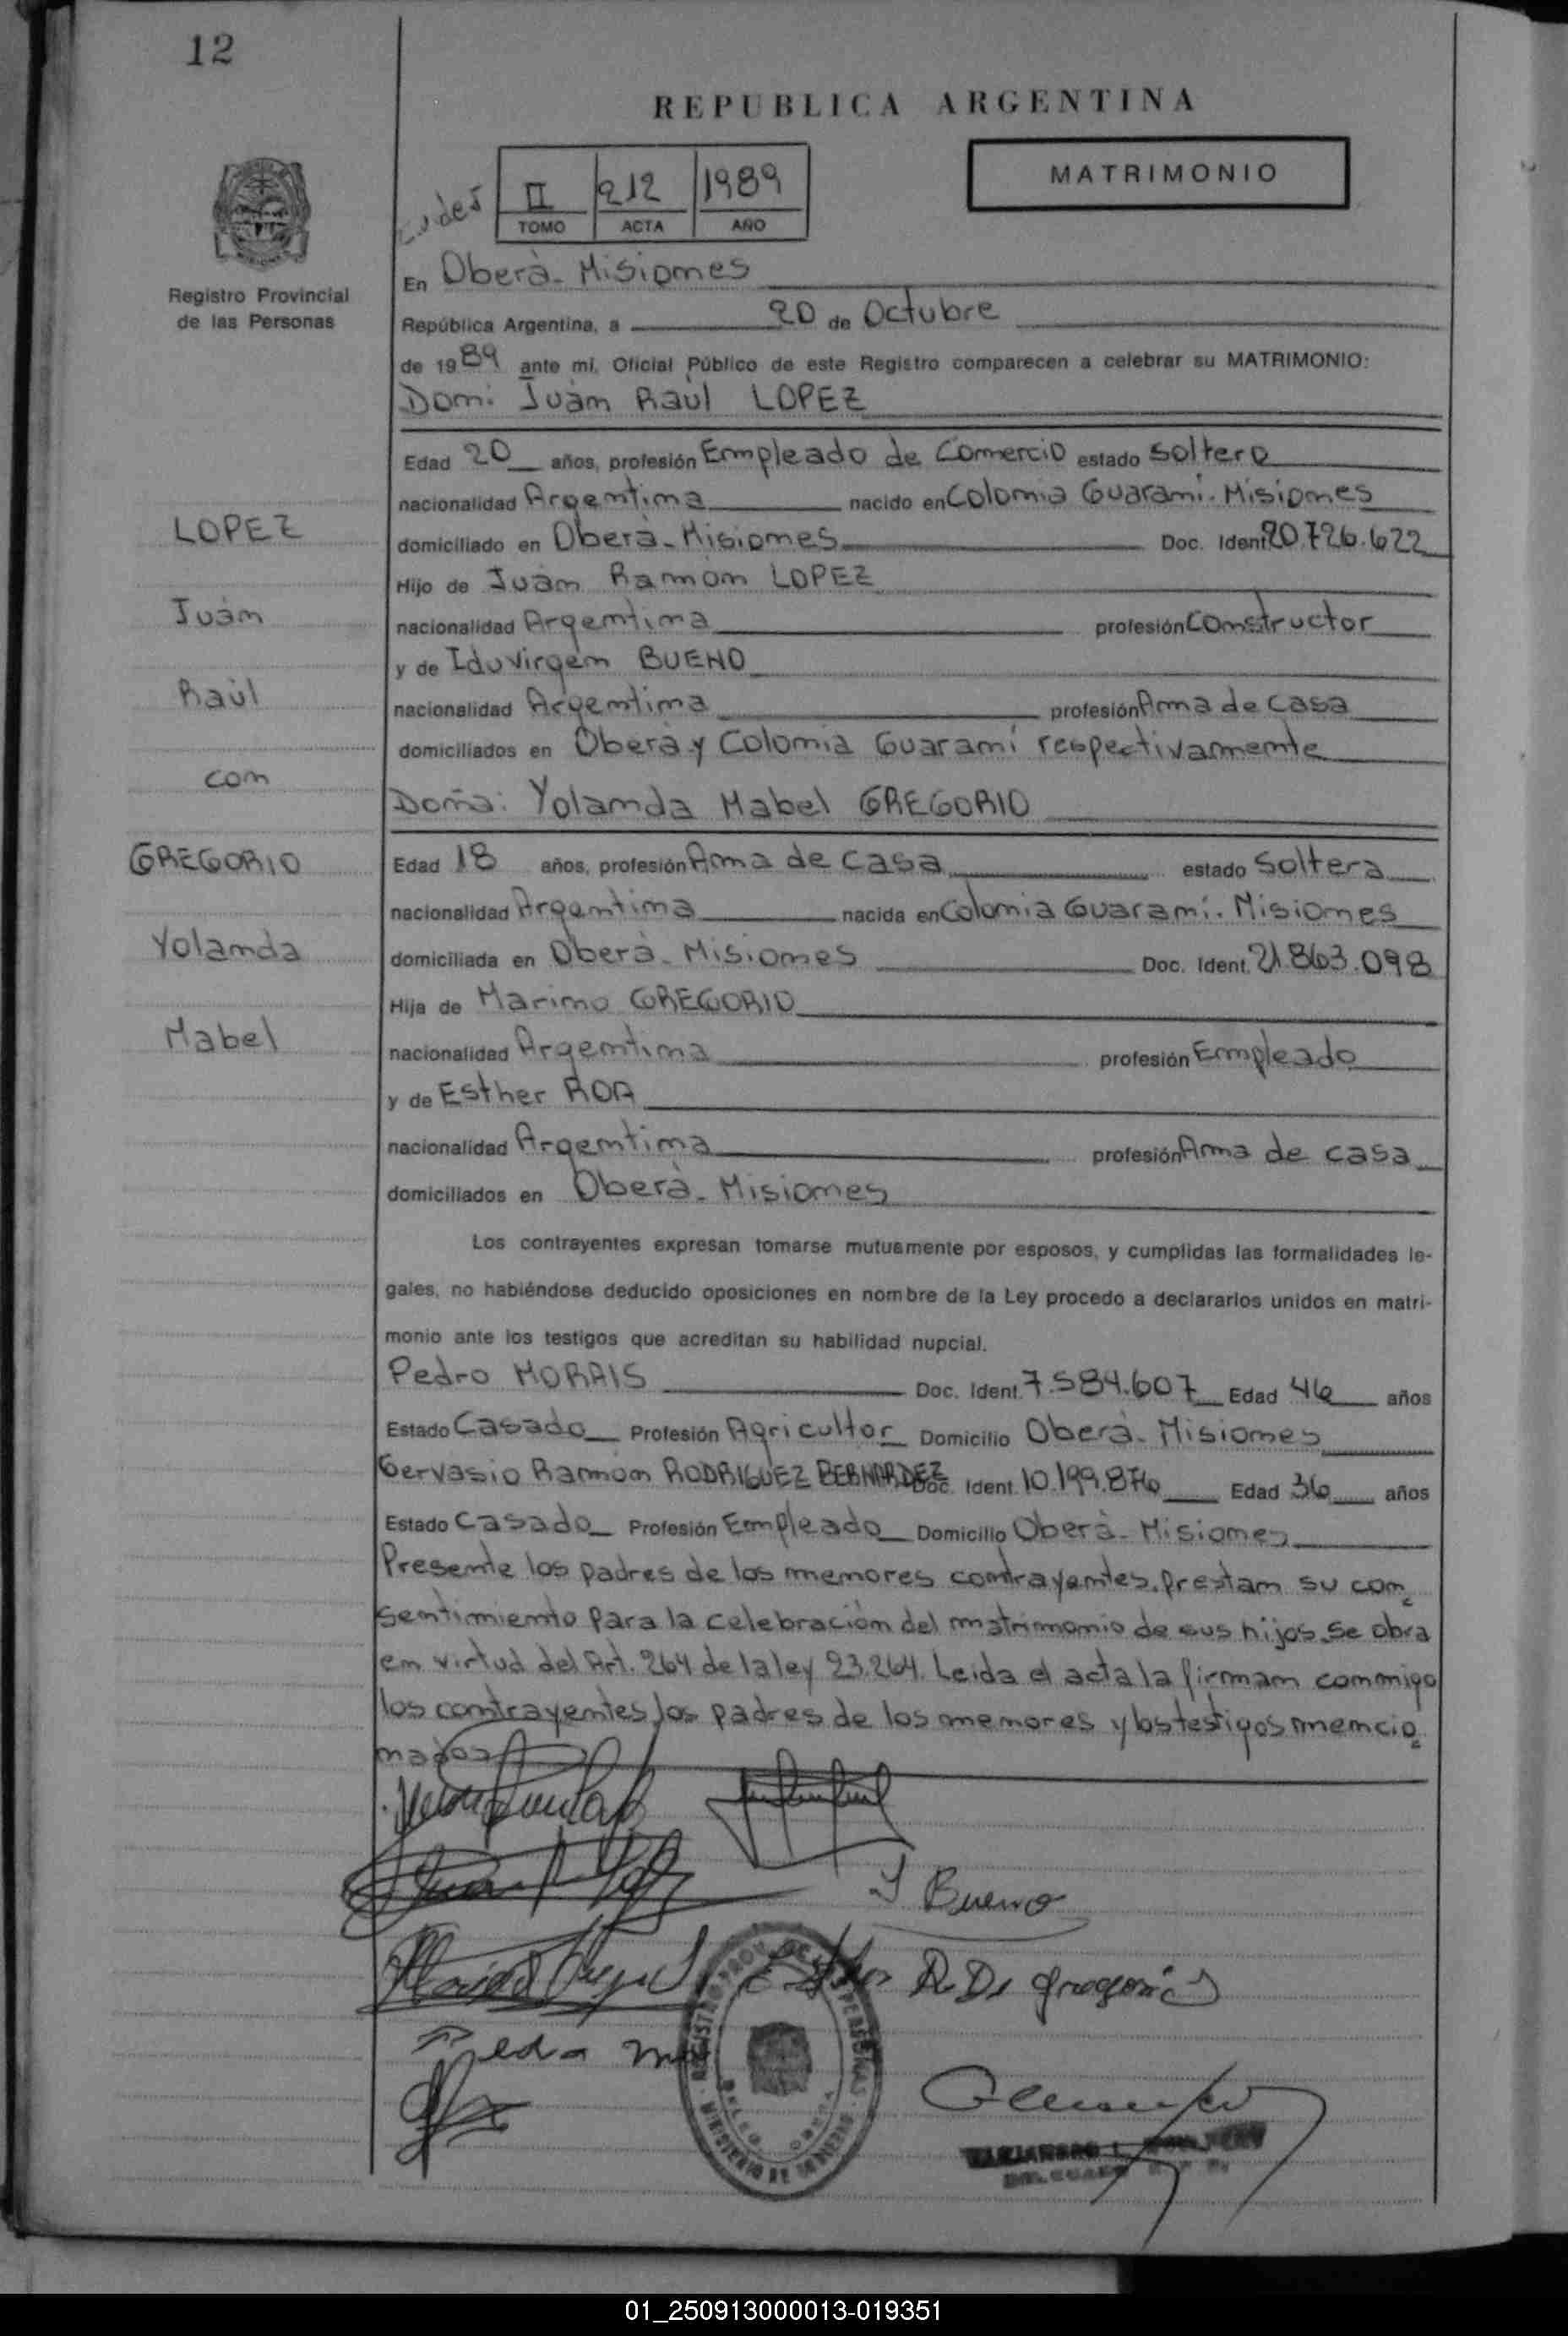 12
REPUBLICA ARGENTINA
MATRIMONIO
II 212 1989
TOMO ACTA AÑO
Registro Provincial
de las Personas
En Oberà - Misiones
República Argentina, a 20 de Octubre
de 1989 ante mi, Oficial Público de este Registro comparecen a celebrar su MATRIMONIO:
Don: Juàn Raùl LOPEZ
Edad 20 años, profesión Empleado de Comercio estado Soltero
nacionalidad Argentina nacido en Colonia Guaraní. Misiones
LOPEZ
domiciliado en Oberà - Misiones Doc. Ident. 20.726.622
Hijo de Juàn Ramòn LOPEZ
Juàn
nacionalidad Argentina profesión Constructor
y de Iduvirgen BUENO
Raùl
nacionalidad Argentina profesión Ama de Casa
domiciliados en Oberà y Colonia Guaraní respectivamente
con
Doña: Yolanda Mabel GREGORIO
GREGORIO
Edad 18 años, profesión Ama de casa estado Soltera
nacionalidad Argentina nacida en Colonia Guaraní. Misiones
Yolanda
domiciliada en Oberà - Misiones Doc. Ident. 21.863.098
Hija de Marino GREGORIO
Mabel
nacionalidad Argentina profesión Empleado
y de Esther ROA
nacionalidad Argentina profesión Ama de casa
domiciliados en Oberà - Misiones
Los contrayentes expresan tomarse mutuamente por esposos, y cumplidas las formalidades le-
gales, no habiéndose deducido oposiciones en nombre de la Ley procedo a declararlos unidos en matri-
monio ante los testigos que acreditan su habilidad nupcial.
Pedro MORAIS Doc. Ident. 7.584.607 Edad 46 años
Estado Casado Profesión Agricultor Domicilio Oberà - Misiones
Gervasio Ramòn RODRIGUEZ BERNARDEZ Doc. Ident. 10.199.876 Edad 36 años
Estado Casado Profesión Empleado Domicilio Oberà - Misiones
Presente los padres de los menores contrayentes, prestan su con=
sentimiento para la celebraciòn del matrimonio de sus hijos, se obra
en virtud del Art. 264 de la ley 23.264. Leida el acta la firman conmigo
los contrayentes, los padres de los menores y los testigos mencio=
nados
I Bueno
Esther R De Gregorio
Pedro
REGISTRO PROV. DE LAS PERSONAS
MINISTERIO DE GOBIERNO
01_250913000013-019351